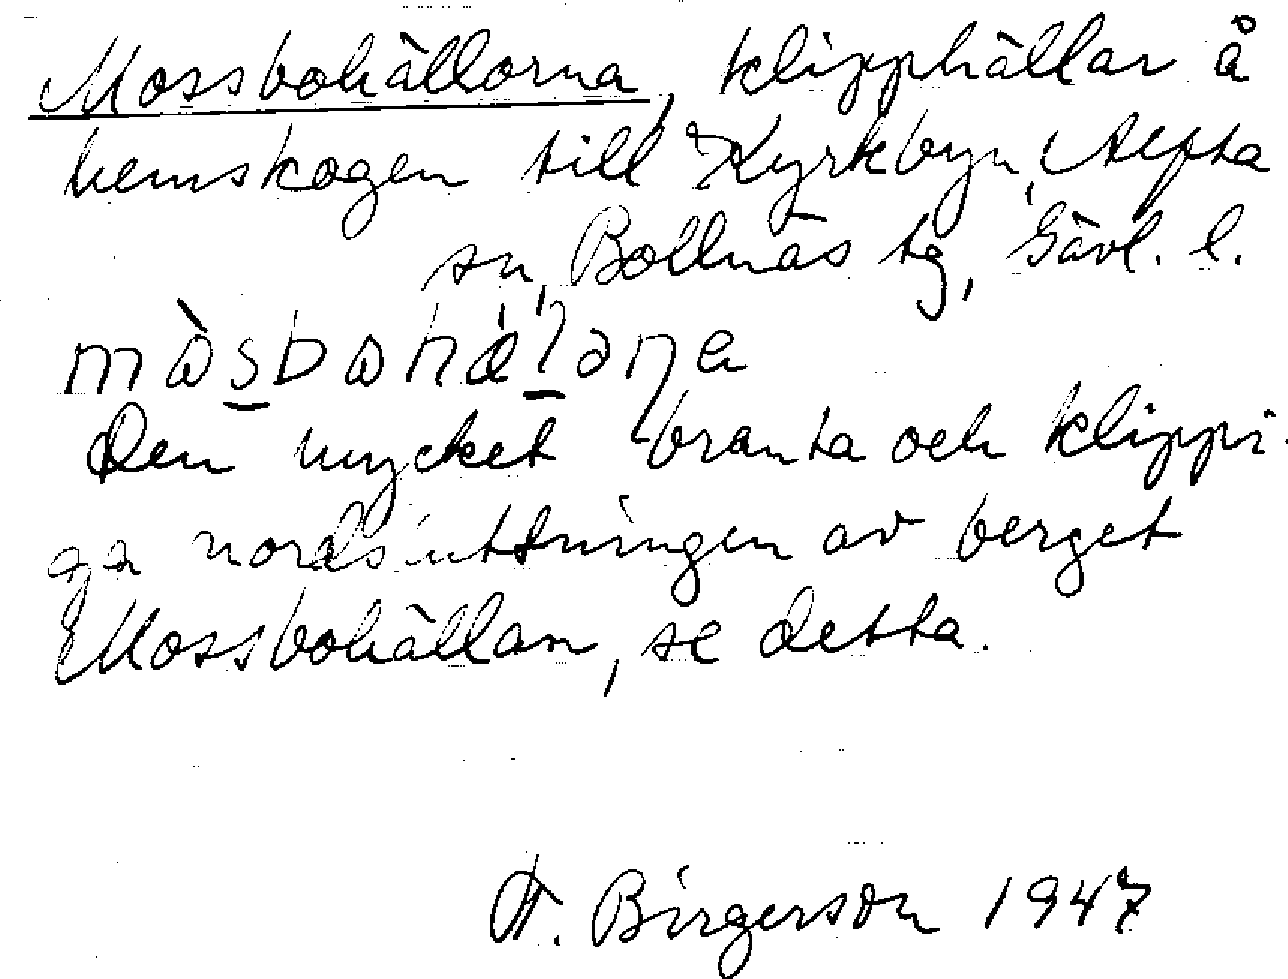 Mossbohällorna, klipphällar å
hemskogen till Kyrkbyn, Alfta
sn, Bollnäs tg, Gävl. l.
Den mycket branta och klippi-
ga nordsluttningen av berget
Mossbohällan, se detta.
F. Birgerson 1947